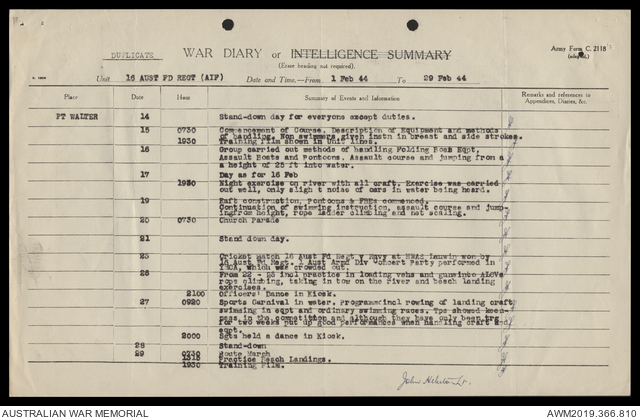 DUPLICATE WAR DIARY or INTELLIGENCE SUMMARY Army Form C. 2118
(Erase heading not required).
Unit 16 AUST FD REGT (AIF) Date and Time.—From 1 Feb 44 To 29 Feb 44
Place Date Hour Summary of Events and Information Remarks and references to
Appendices, Diaries, &c.
PT WALTER 14 Stand-down day for everyone except duties.
15 0730 Commencement of Course. Description of Equipment and methods
of handling. Non swimmers given instn in breast and side strokes.
1930 Training film shown in Unit lines.
16 Group carried out methods of handling Folding Boat Eqpt,
Assault Boats and Pontoons. Assault course and jumping from a
a height of 25 ft into water.
17 Day as for 16 Feb
1930 Night exercise on river with all craft. Exercise was carried
out well, only slight noise of oars in water being heard.
19 Raft construction, Pontoons & FBEs commenced.
Continuation of swimming instruction, assault course and jump-
ingfrom height, rope ladder climbing and net scaling.
20 0730 Church Parade
21 Stand down day.
25 Cricket Match 16 Aust Fd Regt v Navy at HMAS won by
16 Aust Fd Regt. 1 Aust Armd Div Concert Party performed in
YMCA, which was crowded out.
26 From 22 - 25 incl practice in loading vehs and guns into ALCVs
rope climbing, taking in tow on the river and beach landing
exercises.
2100 Officers' Dance in Kiosk.
27 0920 Sports Carnival in water. Programme incl rowing of landing craft,
swimming in eqpt and ordinary swimming races. Tps showed keen-
ness in the competition and although they have only been trg
for two weeks put up good performances when handling craft and
eqpt.
2000 Sgts held a dance in Kiosk.
28 Stand-down
29 0730 Route March
1315 Practice Beach Landings.
1930 Training Film.
AUSTRALIAN WAR MEMORIAL AWM2019.366.810